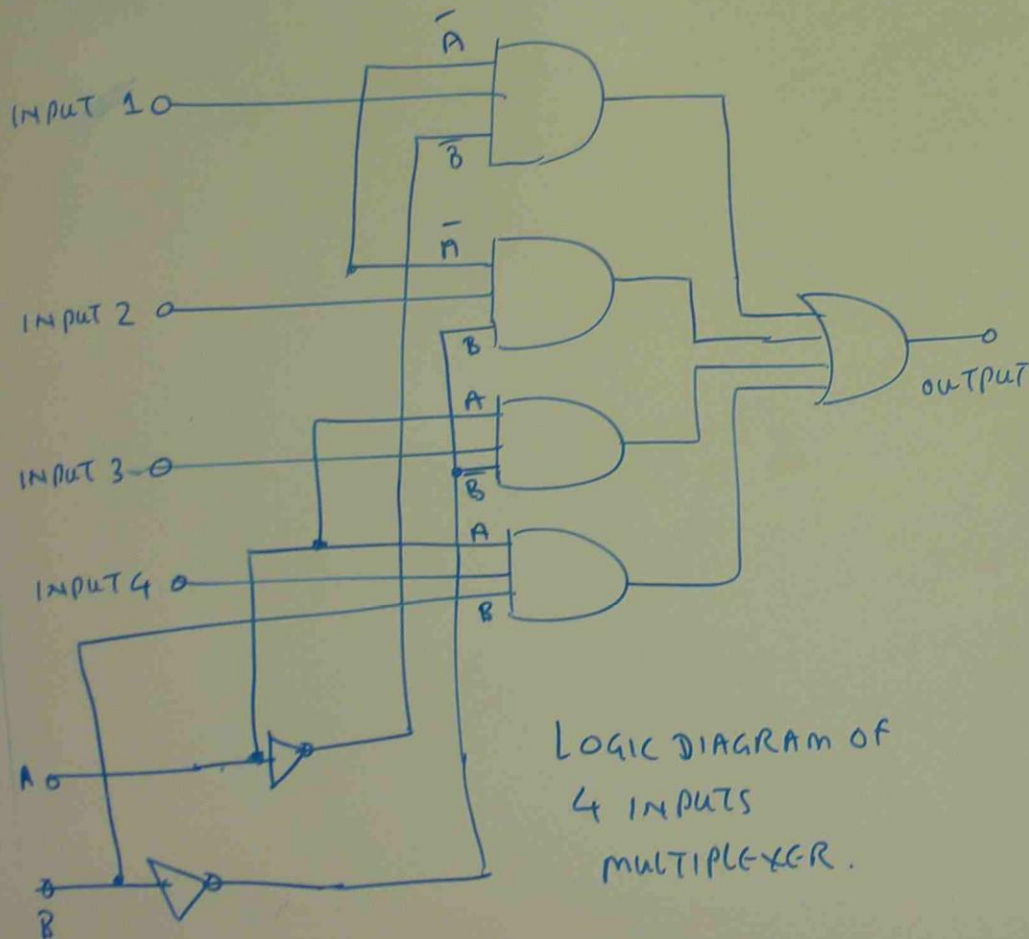 Ā
INPUT 1
B̅
Ā
INPUT 2
B
A
INPUT 3
B̅
A
INPUT 4
B
OUTPUT
A
B
LOGIC DIAGRAM OF
4 INPUTS
MULTIPLEXER.